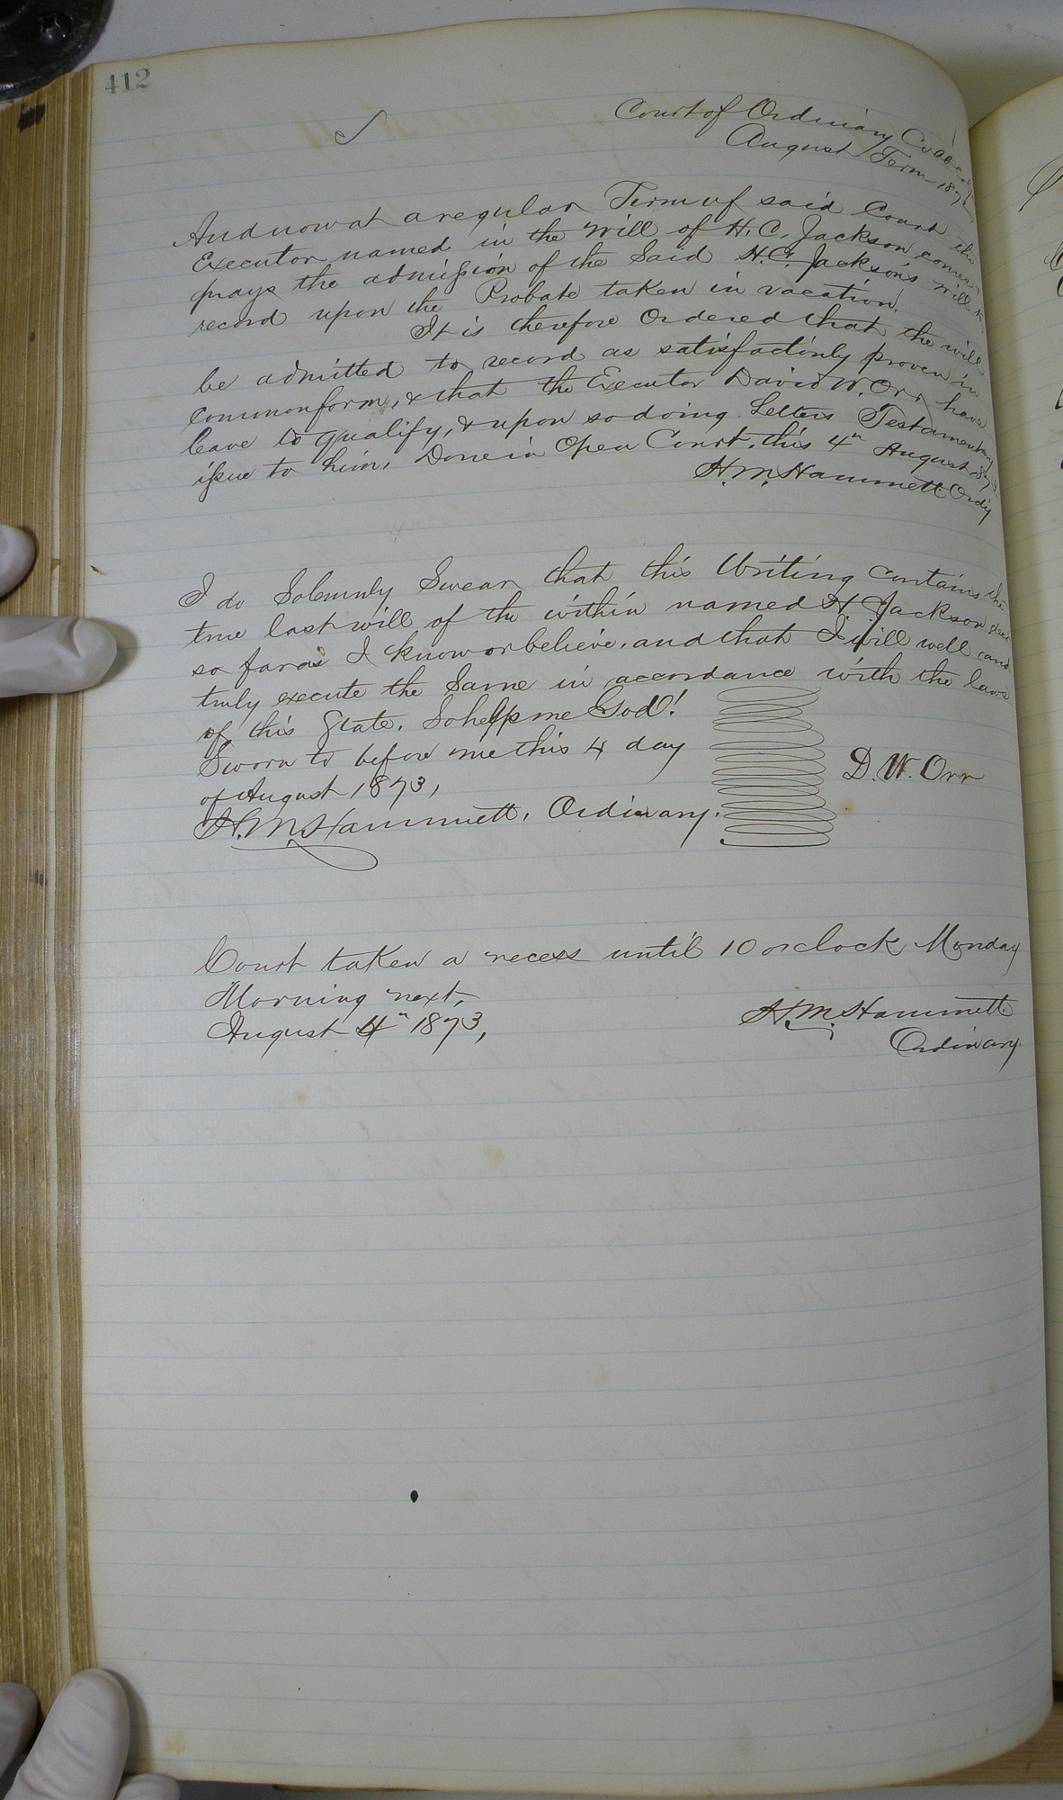 412
Court of Ordinary
August Term 187
And now at a regular Term of said Court the
Executor named in the Will of H. C. Jackson comes &
prays the admission of the Said H. C. Jackson's Will to
record upon the Probate taken in vacation.
It is therefore Ordered that the will
be admitted to record as satisfactorily proven in
common form, & that the Executor David W. Orr have
leave to qualify, & upon so doing Letters Testamentary
issue to him, Done in Open Court, this 4th August
H. M. Hammett Ordy
I do Solemnly Swear that this Writing contains the
true last will of the within named H Jackson decd
so far as I know or believe, and that I will well and
truly execute the Same in accordance with the laws
of this State. So help me God!
Sworn to before me this 4 day
of August 1873,
D. W. Orr
H. M. Hammett, Ordinary.
Court taken a recess until 10 oclock Monday
Morning next,
August 4" 1873,
H. M. Hammett
Ordinary.